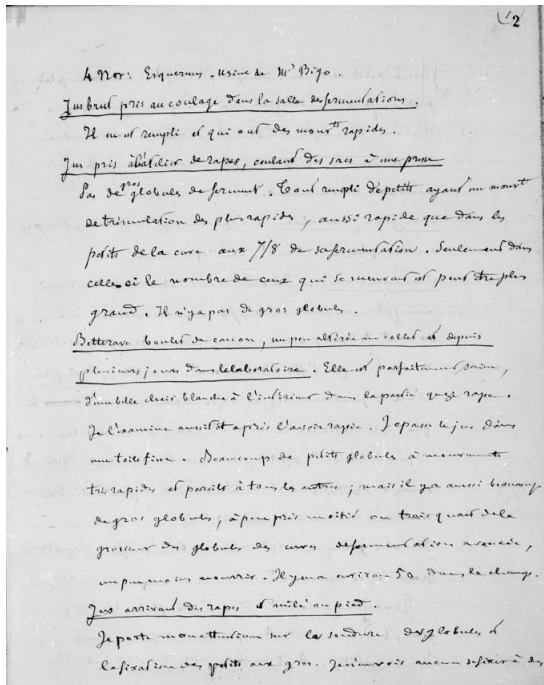 2
4 Nov: Esquermes. Usine de Mr Bigo.
Jus brut pris au coulage dans la salle des fermentations.
Il en est rempli et qui ont des mouvts rapides.
Jus pris à l'atelier de rapes, coulant des sacs à une presse
Pas de gros globules de ferment. Tout rempli de petits ayant un mouvt
de trémulation des plus rapides, aussi rapide que dans les
petits de la cuve aux 7/8 de sa fermentation. Seulement dans
celle ci le nombre de ceux qui se meuvent est peut être plus
grand. Il n'y a pas de gros globules.
Betterave boulet de canon, un peu altérée au collet et depuis
plusieurs jours dans le laboratoire. Elle est parfaitement saine,
d'une belle chair blanche à l'intérieur dans la partie que je rape.
Je l'examine aussitôt après l'avoir rapée. Je passe le jus dans
une toile fine. Beaucoup de petits globules à mouvements
très rapides et pareils à tous les autres; mais il y a aussi beaucoup
de gros globules, à peu près moitié ou trois quart de la
grosseur des globules des cuves de fermentation avancée,
un peu moins nourris. Il y en a environ 50 dans le champ.
Jus arrivant des rapes et mêlé au pied.
Je porte mon attention sur la soudure des globules et
la fixation des petits aux gros. Je n'en vois aucun se fixer à des